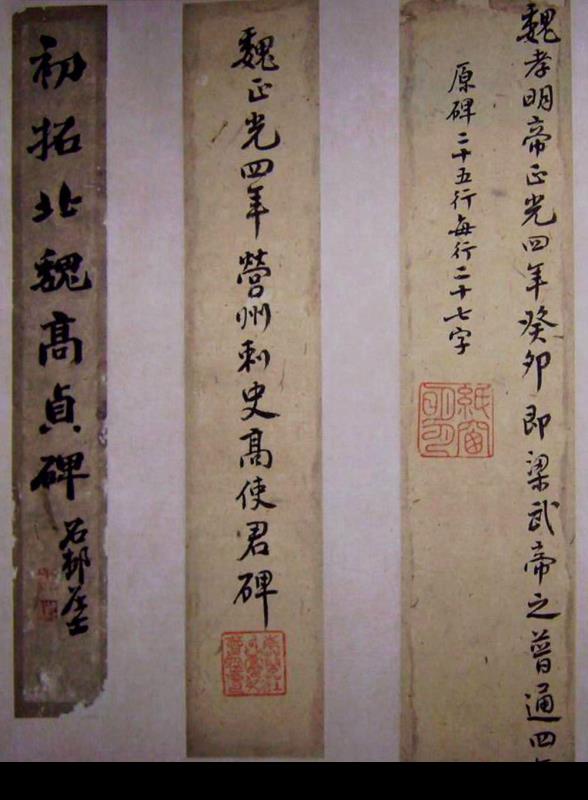 魏孝明帝正光四年癸卯即梁武帝之普通四年
原碑二十五行每行二十七字
魏正光四年營州刺史高使君碑
初拓北魏高貞碑
石邨